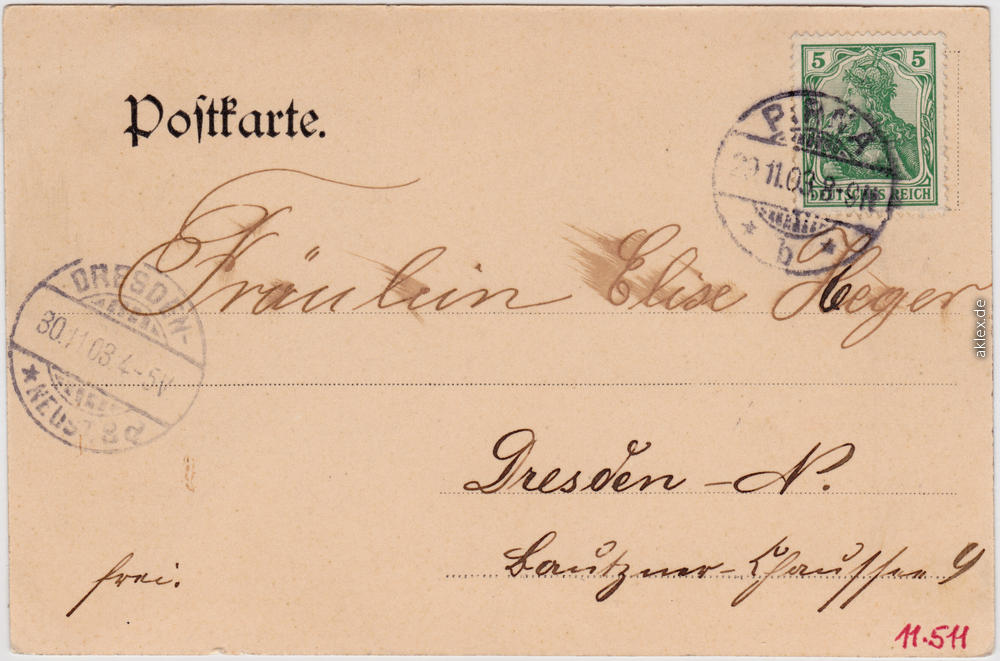 Postkarte.
5 5
DEUTSCHES REICH
PIRNA
29.11.03. 8-9N
* b *
Fräulein Elise Heger
DRESDEN-
30.11.03. 4-5V
* NEUST. 3 d
Dresden - N.
Bautzner-Chaussee 9
frei.
11.511
aklex.de